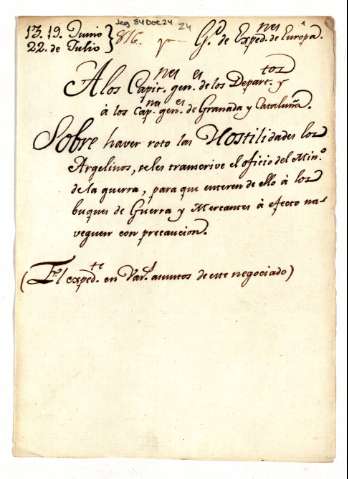 Leg. 84 Doc 24 24
13. 19. Junio
22. de Julio } 816. G.l de Exped.nes de Európa.
A los Capit.nes gen.es de los Depart.tos y
á los Cap.nes gen.es de Granada y Cataluña.
Sobre haver roto las Hostilidades los
Argelinos, se les transcrive el oficio del Min.o
de la guerra, para que enteren de ello á los
buques de Guerra y Mercantes á efecto na-
veguen con precaucion.
(El exped.te en Var.s asuntos de este negociado)